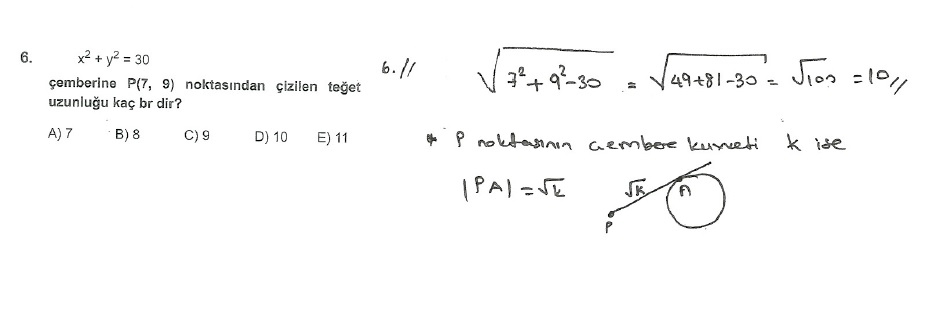 6. x² + y² = 30
çemberine P(7, 9) noktasından çizilen teğet
uzunluğu kaç br dir?
A) 7 B) 8 C) 9 D) 10 E) 11
6. // √7²+9²-30 = √49+81-30 = √100 = 10 //
* P noktasının çembere kuvveti k ise
|PA| = √k
√k A
P